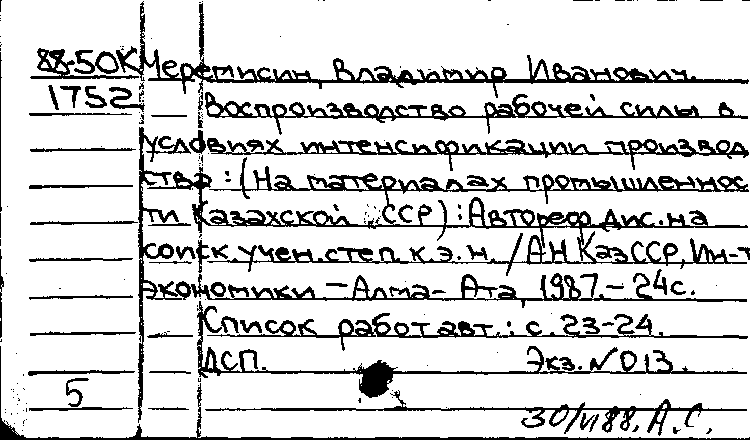 88-50К Черемисин, Владимир Иванович.
1752 Воспроизводство рабочей силы в
условиях интенсификации производ
ства : (На материалах промышленнос
ти Казахской ССР) : Автореф. дис. на
соиск. учен. степ. к. э. н. / АН КазССР, Ин-т
экономики – Алма- Ата, 1987. – 24с.
Список работ авт. : с. 23-24.
ДСП. Экз. N 013.
5
30/VI88. А.С.